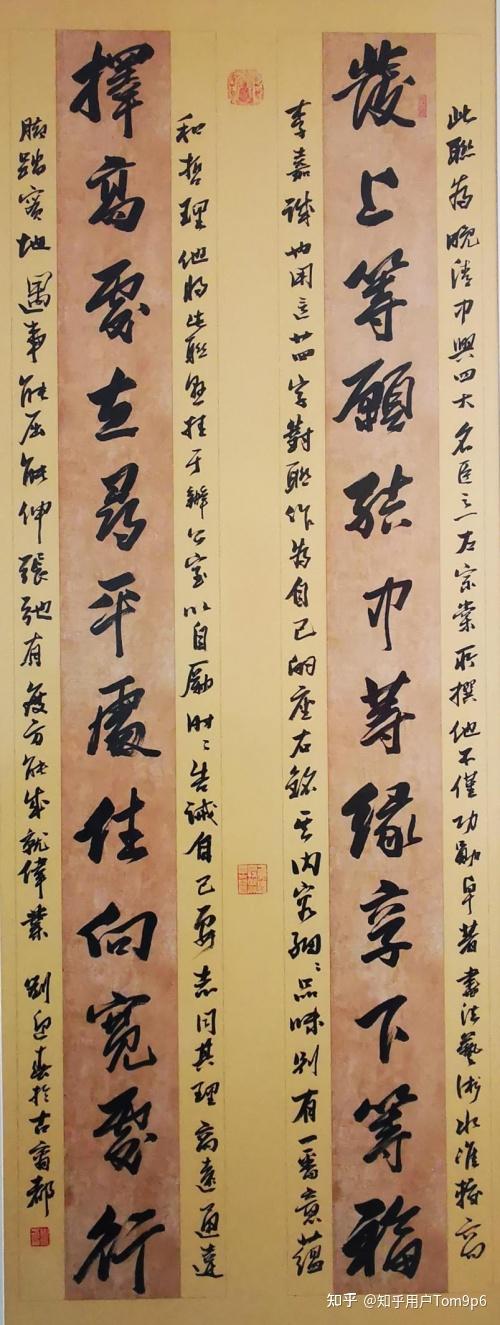 此聯為晚清中興四大名臣之左宗棠所撰他不僅功勳卓著書法藝術水准高
發上等願結中等緣享下等福
李嘉誠也用這廿四字對聯作為自己的座右銘其內容細々品味別有一番意蘊
和哲理他將此聯懸挂于辦公室以自勵時々告誡自己要志同其理高遠通達
擇高處立尋平處住向寬處行
腳踏實地遇事能屈能伸張弛有度方能成就偉業 劉迎春於古都
知乎 @知乎用户Tom9p6